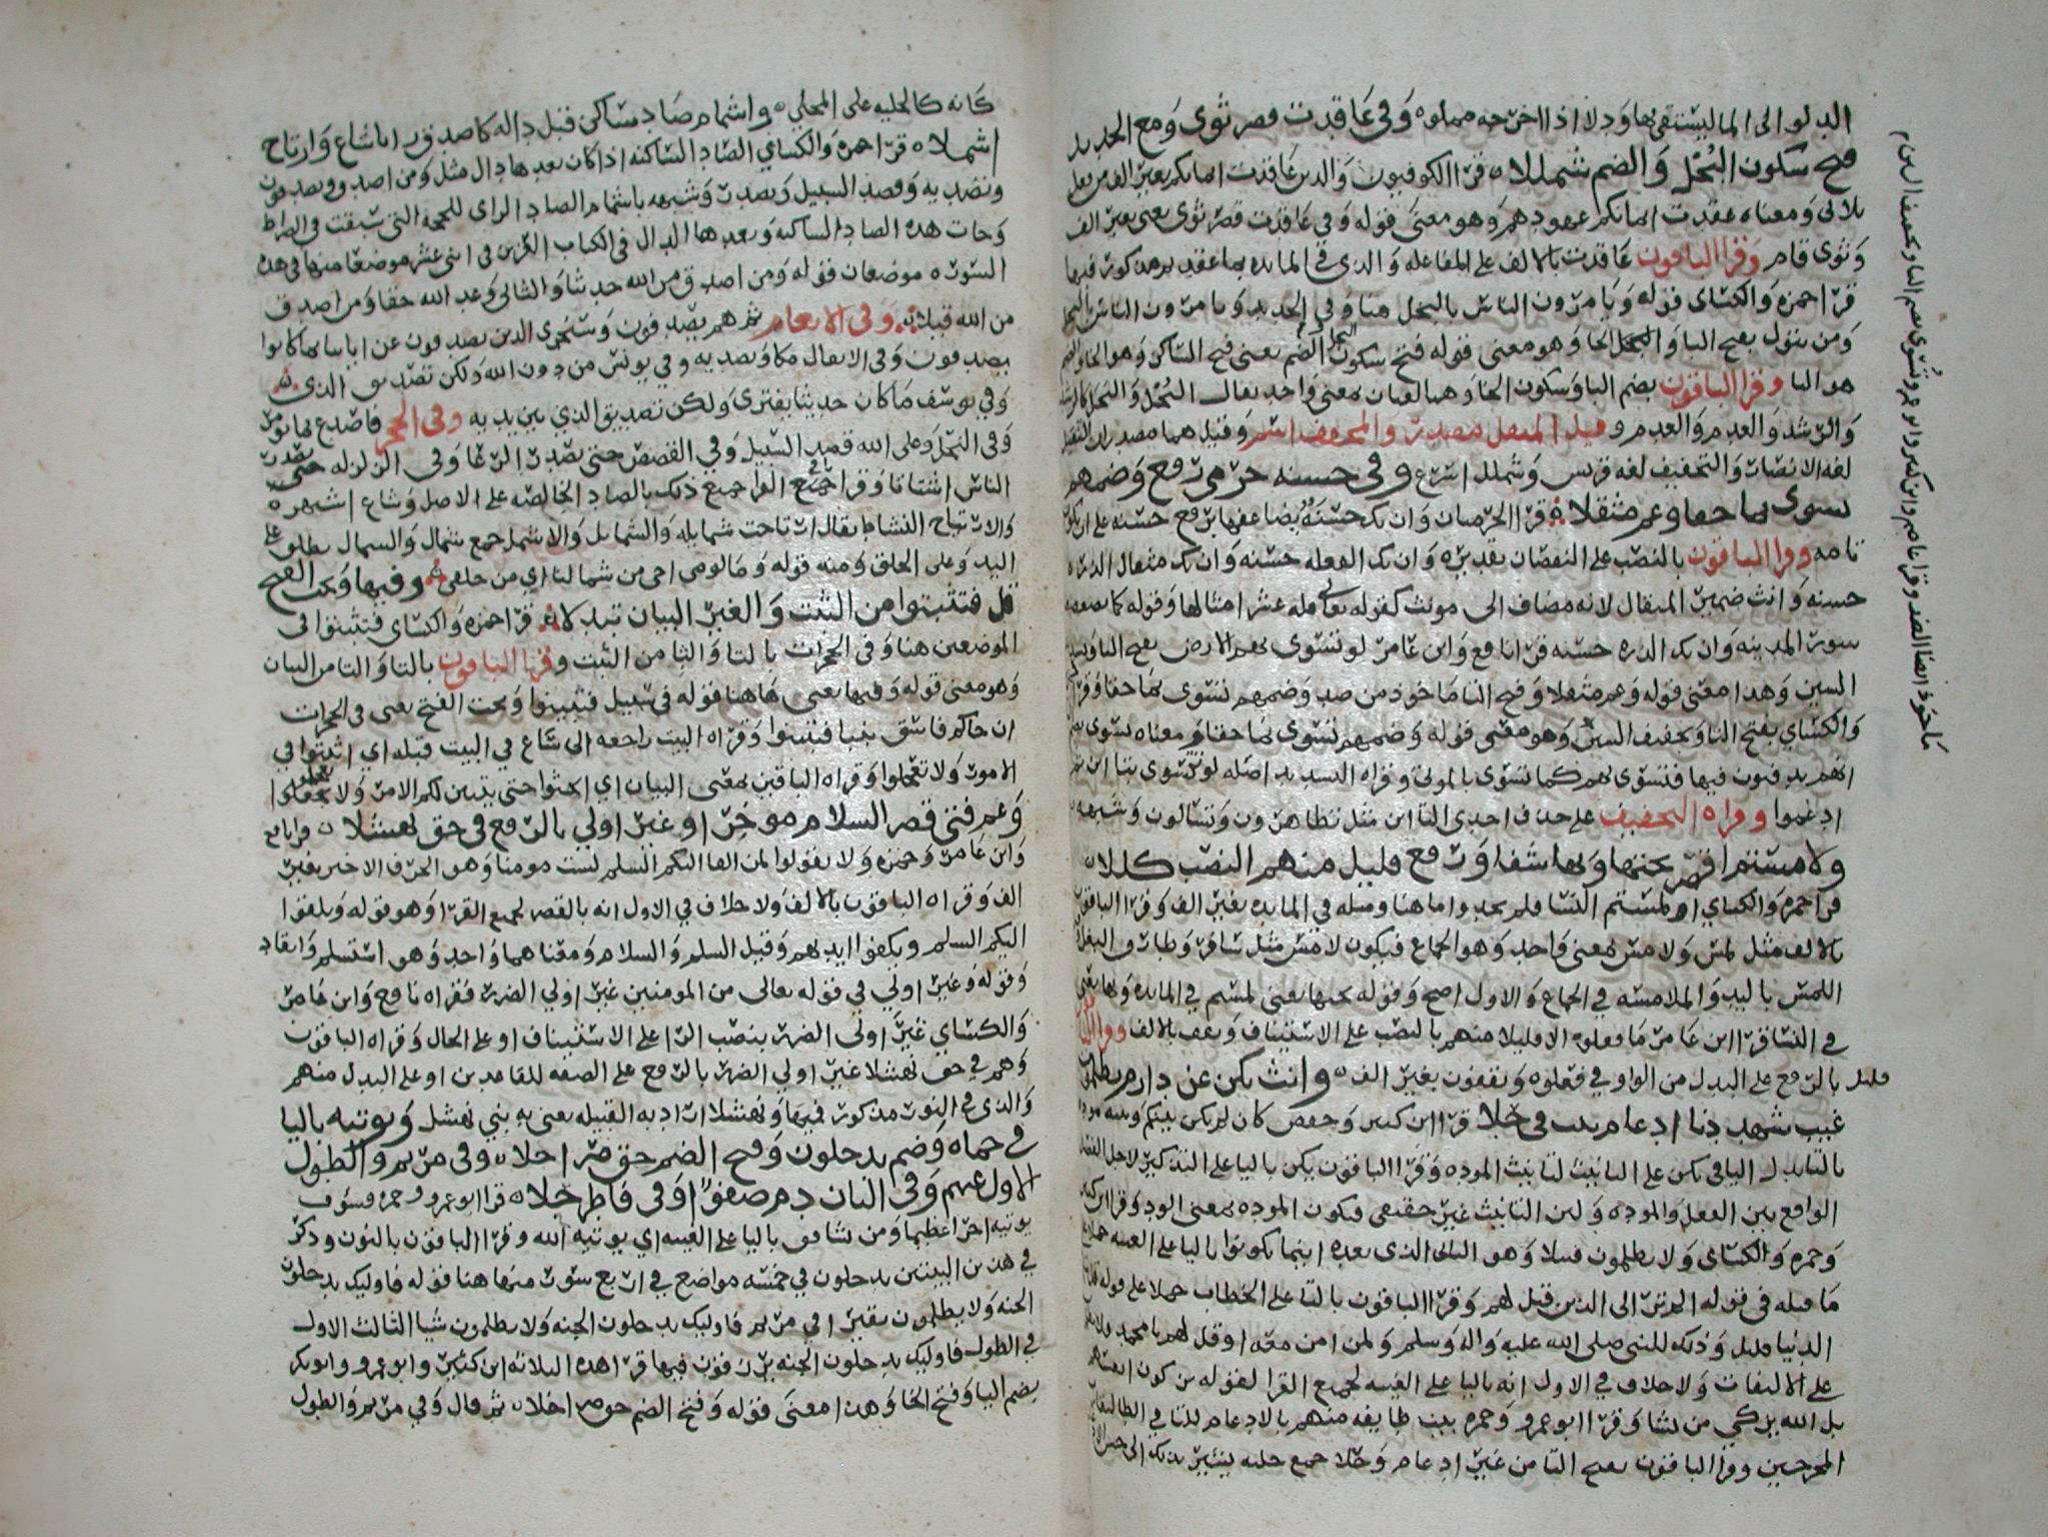 الدلو الى الما ليستقى بها ودلا اذا اخرجه مملوه وفي عاقدت قصر ثوى ومع الحديد
فتح سكون البخل والضم شمللا ه قرا الكوفيون والذين عاقدت ايمانكم بغير الف من
ومعناه عقدت ايمانكم عهودهم وهو معنى قوله وفي عاقدت قصر ثوى يعني بغير الف
وثوى قام وقرا الباقون عاقدت بالالف على المفاعله والذي في المايده بما عقدتم مذكور فيها
قرا حمزه والكساى قوله ويامرون الناس بالبخل هنا وفي الحديد ويامرون الناس بالبخل
ومن يتول بفتح البا والخا وهو معنى قوله فتح سكون البخل والضم يعنى فتح الساكن وهو الخا والضم
هو البا وقرا الباقون بضم البا وسكون الخا وهما لغتان بمعنى واحد يقال البُخْل والبَخَل كالرشد
والرشد والعدم والعدم وقيل المثقل مصدر والمخفف اسم وقيل هما مصدران
لغه الانصار والتخفيف لغه قريش وشملل اسرع وفي حسنه حرمي رفع وضمهم
تسوى نما حقا وعم مثقلا ه قرا الحرميان وان تك حسنةٌ يضاعفها برفع حسنه على ان تكون
تامه وقرا الباقون بالنصب على النقصان تقديره وان تك الفعله حسنه وان تك مثقال الذره
حسنه وانث ضمير المثقال لانه مضاف الى مونث كقوله تعالى فله عشر امثالها وقوله
سور المدينه وان تك الذره حسنه قرا نافع وابن عامر لو تسوى بهم الارض بفتح التا وتشديد
السين وهذا معنى قوله وعم مثقلا وفتح التا ماخوذ من ضد وضمهم تسوى نما حقا وقرا حمزة
والكساي بفتح التا وتخفيف السين وهو معنى قوله وضمهم تسوى نما حقا ومعناه تسوى
انهم يدفنون فيها فتسوى بهم كما تسوى بالموتى وقراه التشديد اصله لو تتسوى بتا ان ثم
ادغموا وقراه التخفيف على حذف احدى التا ان مثل تظاهرون وتسالون وشبهه
ولا مستم اقصر تحتها وبها شفا ورفع قليل منهم النصب كللا ه
قرا حمزه والكساي او لمستم النسا فلم تجدوا ما هنا ومثله في المايده بغير الف وقرا الباقون
بالالف مثل لمس ولامس بمعنى واحد وهو الجماع فيكون لامس مثل سافر وطارق النعل
اللمس باليد والملامسه في الجماع والاول اصح وقوله تحتها يعنى لمستم في المايده وبها يعني
في النسا قرا ابن عامر ما فعلوه الا قليلا منهم بالنصب على الاستثناف ويقف بالالف وقرا الباقون
قليل بالرفع على البدل من الواو في فعلوه ويقفون بغير الف ه وانث يكن عن دارم يظلمون
غيب شهد دنا ادغام بيت في حلا قرا ابن كثير وحفص كان لم تكن بينكم وبينه موده
بالتا بدل اليا في تكن على التانيث لتانيث الموده وقرا الباقون يكن باليا على التذكير لاجل الفصل
الواقع بين الفعل والموده ولان التانيث غير حقيقي فتكون الموده بمعنى الود وقرا ابن كثير
وحمزه والكساى ولا يظلمون فتيلا وهو الثاني الذى بعده اينما تكونوا باليا على الغيبه حملا
ما قبله في قوله الم تر الى الذين قيل لهم وقرا الباقون بالتا على الخطاب حملا على قوله
الدنيا قليل وذلك للنبي صلى الله عليه واله وسلم ولمن امن معه او قل لهم يا محمد
على الالتفات ولا خلاف في الاول انه باليا على الغيبه لجميع القرا لقوله من كون
بل الله يزكي من يشا وقرا ابو عمرو وحمزه بيت طايفه منهم بالادغام للتا في الطا
المخرجين وقرا الباقون بفتح التا من غير ادغام وحلا جمع حليه
كانه كالحليه على المحلي ه واشمام صاد ساكن قبل داله كاصدق زايا شاع وارتاح
اشملا ه قرا حمزه والكساي الصاد الساكنه اذا كان بعدها دال مثل ومن اصدق ويصدفون
وتصديه وقصد السبيل ويصدر وشبهه باشمام الصاد الزاى للجمهه التى سبقت في الصراط
وجات هذه الصاد الساكنه وبعدها الدال في الكتاب العزيز في اثنى عشر موضعا منها في هذه
السوره موضعان قوله ومن اصدق من الله حديثا والثانى وعد الله حقا ومن اصدق
من الله قيلا ه وفي الانعام ثم هم يصدفون وسنجزى الذين يصدفون عن اياتنا بما كانوا
يصدفون وفى الانفال مكا وتصديه وفي يونس من دون الله ولكن تصديق الذى
وفي يوسف ما كان حديثا يفترى ولكن تصديق الذي بين يديه وفى الحجر فاصدع بما تومر
وفى النحل وعلى الله قصد السبيل وفي القصص حتى يصدر الرعا وفى الزلزله يصدر
الناس اشتاتا وقرا باقي القرا جميع ذلك بالصاد الخالصه على الاصل وشاع اشتهر ه
والارتياح النشاط يقال ارتاحت شمايله والشمايل والاشمل جمع شمال والشمال يطلق على
اليد وعلى الخلق ومنه قوله وما لومى اخى من شماليا اي من خلقي وفيها وتحت الفتح
قل فتثبتوا من الثبت والغير البيان تبدلا ه قرا حمزه والكساى فتثبتوا في
الموضعين هنا وفي الحجرات بالتا والثا من الثبت وقرا الباقون باليا والتا من البيان
وهو معنى قوله وفيها يعنى هاهنا قوله في سبيل فتبينوا وتحت الفتح يعنى فى الحجرات
ان جاكم فاسق بنبا فتبينوا وقراه البيت راجعه الى شاع في البيت قبله اي اثبتوا في
الامور ولا تعجلوا وقراه الباقين بمعنى البيان اي ابحثوا حتى يتبين لكم الامر ولا تعجلوا
وعم فتى قصر السلام موخرا وغير اولي بالرفع في حق نهشلا ه قرا نافع
وابن عامر وحمزه ولا تقولوا لمن القا اليكم السلم لست مومنا وهو الحرف الاخير بغير
الف وقراه الباقون بالالف ولا خلاف في الاول انه بالقصر لجميع القرا وهو قوله ويلقوا
اليكم السلم ويكفوا ايديهم وقيل السلم والسلام ومعناهما واحد وهو استسلم وانقاد
وقوله وغير اولي في قوله تعالى من المومنين غير اولي الضرر فقراه نافع وابن عامر
والكساي غير اولى الضرر بنصب الرا على الاستثناف او على الحال وقراه الباقون
وهم في حق نهشلا غير اولي الضرر بالرفع على الصفه للقاعدين او على البدل منهم
والذى في النون مذكور فيها ونهشلا اراد به القبيله يعنى به بني نهشل ونوتيه باليا
في حماه وضم يدخلون وفتح الضم حق صرا حلا ه وفى مريم والطول
الاول عنهم وفى الثان دم صفوا وفى فاطر حلا ه قرا ابو عمرو وحمزه فسوف
يوتيه اجرا عظيما ومن نشا فى باليا على الغيبه اي يوتيه الله وقرا الباقون بالنون وذكر
في هذين البيتين يدخلون في خمسه مواضع في اربع سور منها هنا قوله فاوليك يدخلون
الجنه ولا يظلمون نقيرا في مريم فاوليك يدخلون الجنه ولا يظلمون شيا الثالث الاول
في الطول فاوليك يدخلون الجنه يرزقون فيها قرا هذه الثلاثه ابن كثير وابو عمرو وابو بكر
بضم اليا وفتح الخا وهذا معنى قوله وفتح الضم حق صرا حلا ه ثم قال وفي مريم والطول